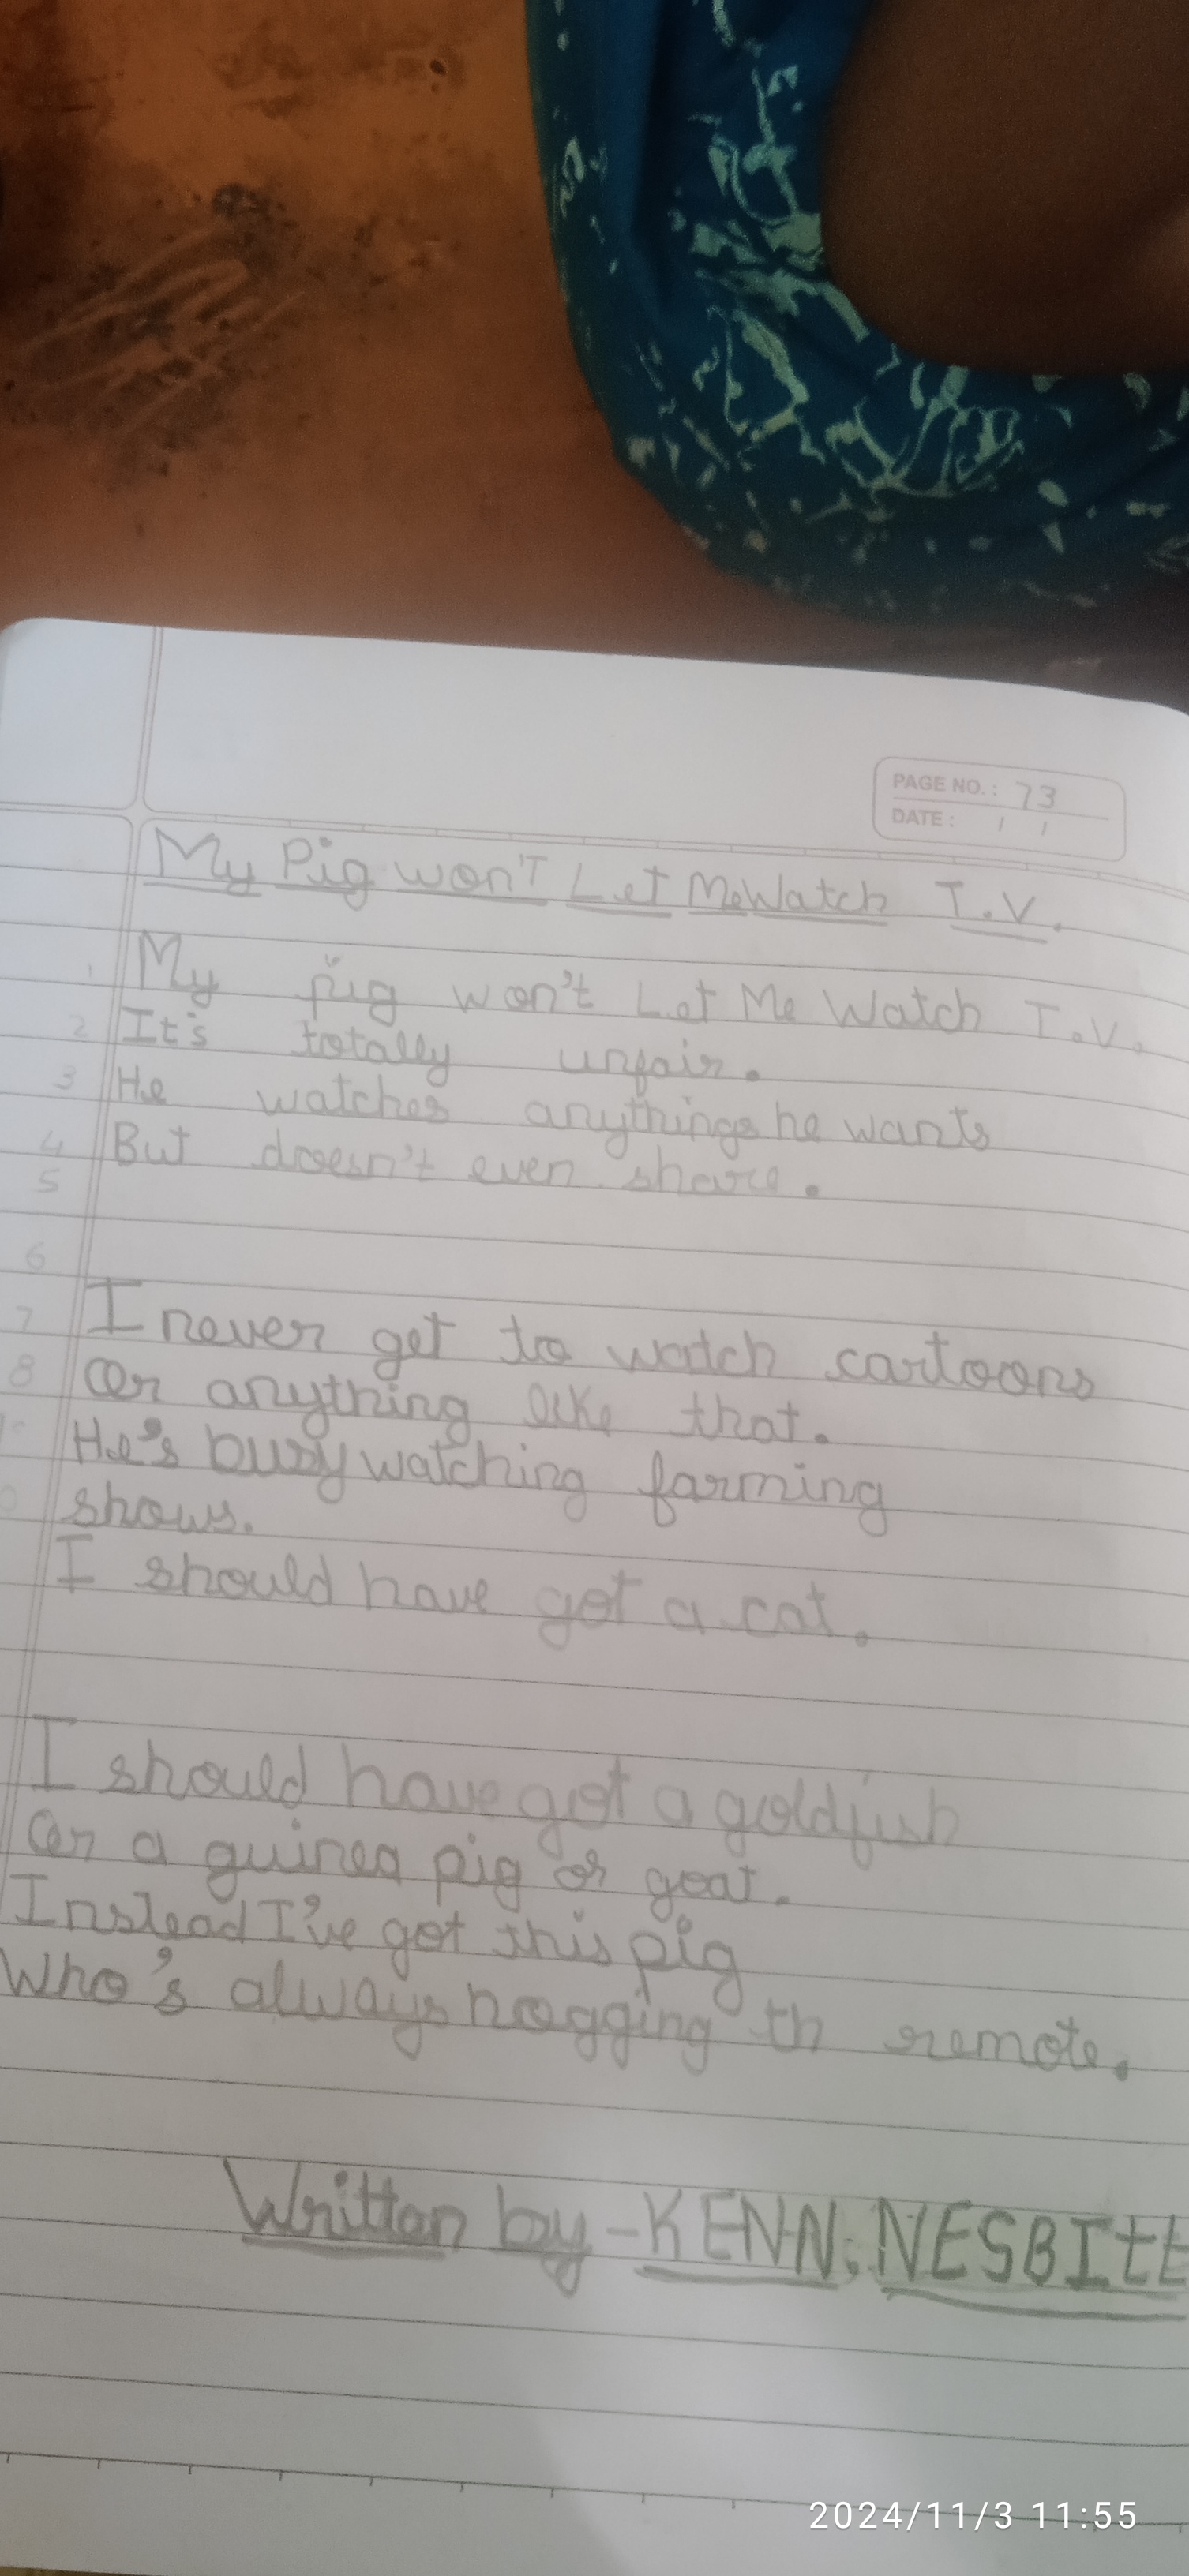 PAGE NO.: 73
DATE: / /
My Pig won'T Let Me Watch T.V.
1 My pig won't Let Me Watch T.V.
2 It's totally unfair.
3 He watches anythings he wants
4 But doesn't even share.
5
6
7 I never get to watch cartoons
8 Or anything like that.
He's busy watching farming
shows.
I should have got a cat.
I should have got a goldfish
Or a guinea pig or goat.
Instead I've got this pig
Who's always hogging th remote.
Written by - KENN. NESBItt
2024/11/3 11:55